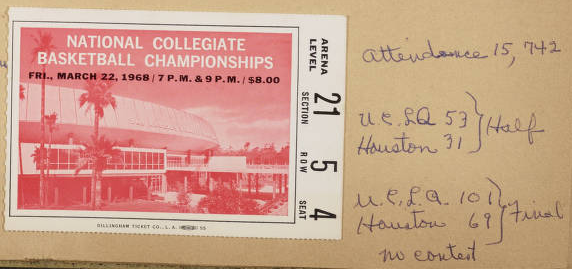 NATIONAL COLLEGIATE
BASKETBALL CHAMPIONSHIPS
FRI., MARCH 22, 1968 / 7 P.M. & 9 P.M. / $8.00
ARENA LEVEL
21 SECTION
5 ROW
4 SEAT
DILLINGHAM TICKET CO., L. A. 55
Attendance 15,742
U.C.L.A. 53
Houston 31
Half
U.C.L.A. 101
Houston 69
Final
no contest